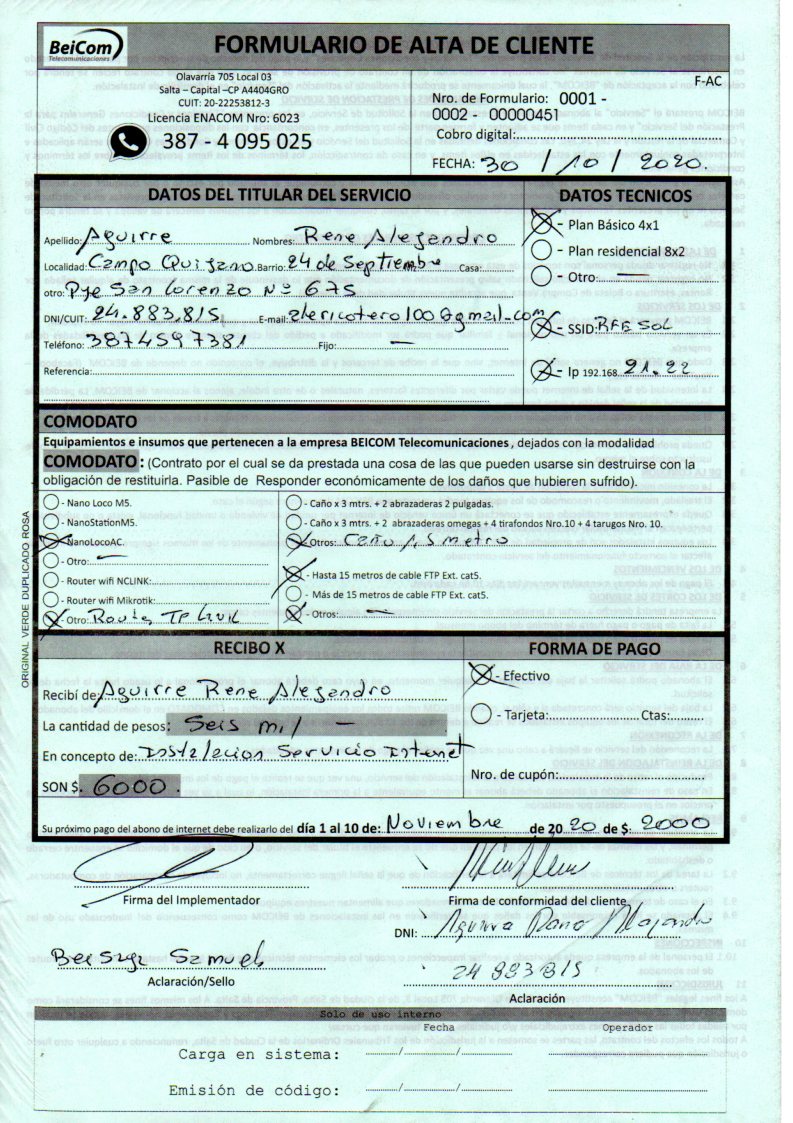 BeiCom
Telecomunicaciones
FORMULARIO DE ALTA DE CLIENTE
Olavarría 705 Local 03
Salta – Capital –CP A4404GRO
CUIT: 20-22253812-3
Licencia ENACOM Nro: 6023
387 - 4 095 025
F-AC
Nro. de Formulario: 0001 -
0002 - 00000451
Cobro digital:
FECHA: 30 / 10 / 2020.
DATOS DEL TITULAR DEL SERVICIO
Apellido: Aguirre Nombres: Rene Alejandro
Localidad: Campo Quijano Barrio: 24 de Septiembre Casa:
otro: Pje San Lorenzo Nº 675
DNI/CUIT: 24.883.815 E-mail: alericotero100@gmail.com
Teléfono: 3874597381 Fijo: —
Referencia:
DATOS TECNICOS
- Plan Básico 4x1
- Plan residencial 8x2
- Otro: —
- SSID: RFE SOL
- Ip 192.168. 21.22
COMODATO
Equipamientos e insumos que pertenecen a la empresa BEICOM Telecomunicaciones, dejados con la modalidad
COMODATO: (Contrato por el cual se da prestada una cosa de las que pueden usarse sin destruirse con la
obligación de restituirla. Pasible de Responder económicamente de los daños que hubieren sufrido).
- Nano Loco M5.
- NanoStationM5.
- NanoLocoAC.
- Otro: —
- Router wifi NCLINK:
- Router wifi Mikrotik:
- Otro: Router TP Link
- Caño x 3 mtrs. + 2 abrazaderas 2 pulgadas.
- Caño x 3 mtrs. + 2 abrazaderas omegas + 4 tirafondos Nro.10 + 4 tarugos Nro. 10.
Otros: Caño 1,5 metro
- Hasta 15 metros de cable FTP Ext. cat5.
- Más de 15 metros de cable FTP Ext. cat5.
- Otros: —
ORIGINAL VERDE DUPLICADO ROSA
RECIBO X
Recibí de: Aguirre Rene Alejandro
La cantidad de pesos: Seis mil —
En concepto de: Instalacion Servicio Internet
SON $. 6000.
FORMA DE PAGO
- Efectivo
- Tarjeta: Ctas:
Nro. de cupón:
Su próximo pago del abono de internet debe realizarlo del día 1 al 10 de: Noviembre de 20 20 de $: 2000
Firma del Implementador
Firma de conformidad del cliente
DNI: Aguirre Rene Alejandro
Samuel
24 883 815
Aclaración/Sello
Aclaración
Solo de uso interno
Fecha Operador
Carga en sistema: / /
Emisión de código: / /